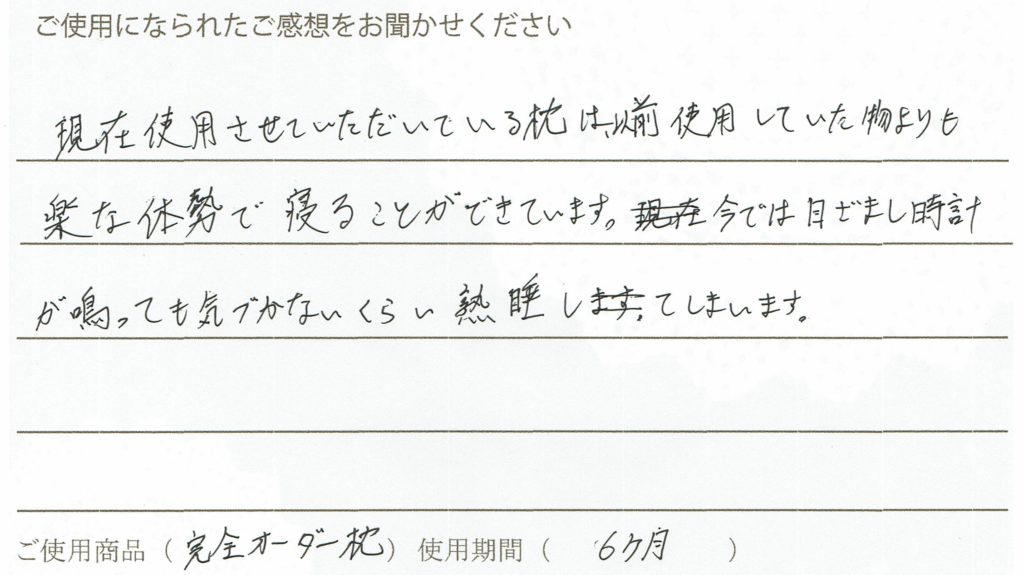 ご使用になられたご感想をお聞かせください
現在使用させていただいている枕は、以前使用していた物よりも
楽な体勢で寝ることができています。現在今では目ざまし時計
が鳴っても気づかないくらい熟睡します。てしまいます。
ご使用商品（完全オーダー枕）使用期間（ 6ヶ月 ）